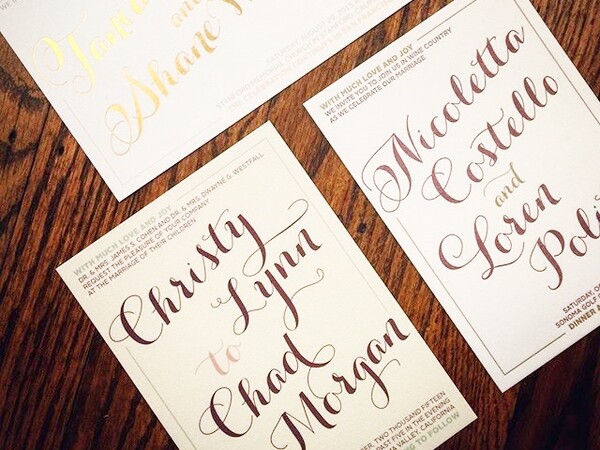 and
Shane
SATURDAY, AUGUST 29, 2015
STANFORD MEMORIAL
WITH MUCH LOVE AND JOY
WE INVITE YOU TO JOIN US IN WINE COUNTRY
AS WE CELEBRATE OUR MARRIAGE
Nicoletta
Costello
and
Loren
SATURDAY,
SONOMA GOLF
DINNER
WITH MUCH LOVE AND JOY
DR. & MRS. JAMES S. COHEN AND DR. & MRS. DWAYNE G. WESTFALL
REQUEST THE PLEASURE OF YOUR COMPANY
AT THE MARRIAGE OF THEIR CHILDREN
Christy
Lynn
to
Chad
Morgan
TWO THOUSAND FIFTEEN
PAST FIVE IN THE EVENING
VALLEY, CALIFORNIA
TO FOLLOW